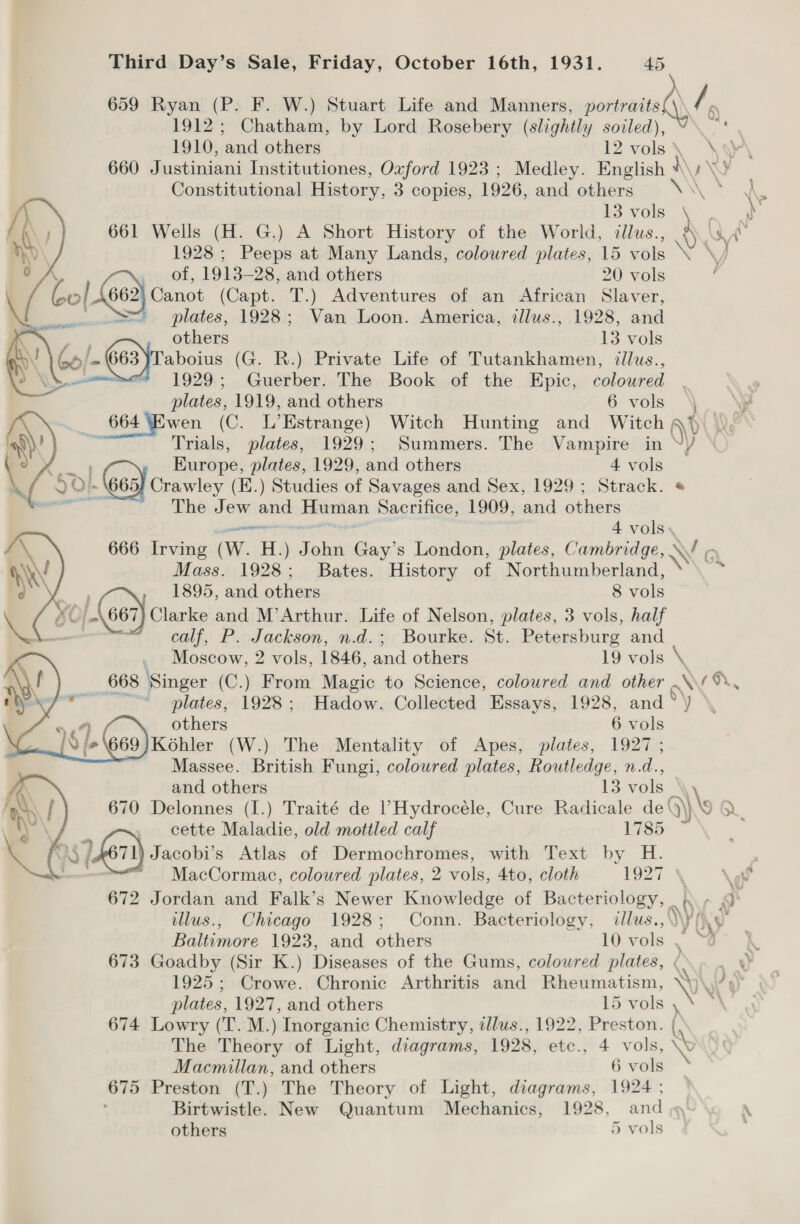 Third Day’s Sale, Friday, October 16th, 1931. 45
659 Ryan (P. F. W.) Stuart Life and Manners, portraits
1912; Chatham, by Lord Rosebery (slightly soiled),
1910, and others 12 vols
660 Justiniani Institutiones, Oxford 1923; Medley. English
Constitutional History, 3 copies, 1926, and others
13 vols
661 Wells (H. G.) A Short History of the World, illus.,
1928; Peeps at Many Lands, coloured plates, 15 vols
of, 1913–28, and others 20 vols
60/- 662 Canot (Capt. T.) Adventures of an African Slaver,
plates, 1928; Van Loon. America, illus., 1928, and
others 13 vols
60/- 663 Taboius (G. R.) Private Life of Tutankhamen, illus.,
1929; Guerber. The Book of the Epic, coloured
plates, 1919, and others 6 vols
664 Ewen (C. L’Estrange) Witch Hunting and Witch
Trials, plates, 1929; Summers. The Vampire in
Europe, plates, 1929, and others 4 vols
50/- 665 Crawley (E.) Studies of Savages and Sex, 1929; Strack.
The Jew and Human Sacrifice, 1909, and others
4 vols
666 Irving (W. H.) John Gay’s London, plates, Cambridge,
Mass. 1928; Bates. History of Northumberland,
1895, and others 8 vols
667 Clarke and M’Arthur. Life of Nelson, plates, 3 vols, half
calf, P. Jackson, n.d.; Bourke. St. Petersburg and
Moscow, 2 vols, 1846, and others 19 vols
668 Singer (C.) From Magic to Science, coloured and other
plates, 1928; Hadow. Collected Essays, 1928, and
others 6 vols
669 Köhler (W.) The Mentality of Apes, plates, 1927;
Massee. British Fungi, coloured plates, Routledge, n.d.,
and others 13 vols
670 Delonnes (I.) Traité de l’Hydrocéle, Cure Radicale de
cette Maladie, old mottled calf 1785
671 Jacobi’s Atlas of Dermochromes, with Text by H.
MacCormac, coloured plates, 2 vols, 4to, cloth 1927
672 Jordan and Falk’s Newer Knowledge of Bacteriology,
illus., Chicago 1928; Conn. Bacteriology, illus.,
Baltimore 1923, and others 10 vols
673 Goadby (Sir K.) Diseases of the Gums, coloured plates,
1925; Crowe. Chronic Arthritis and Rheumatism,
plates, 1927, and others 15 vols
674 Lowry (T. M.) Inorganic Chemistry, illus., 1922, Preston.
The Theory of Light, diagrams, 1928, etc., 4 vols,
Macmillan, and others 6 vols
675 Preston (T.) The Theory of Light, diagrams, 1924;
Birtwistle. New Quantum Mechanics, 1928, and
others 5 vols